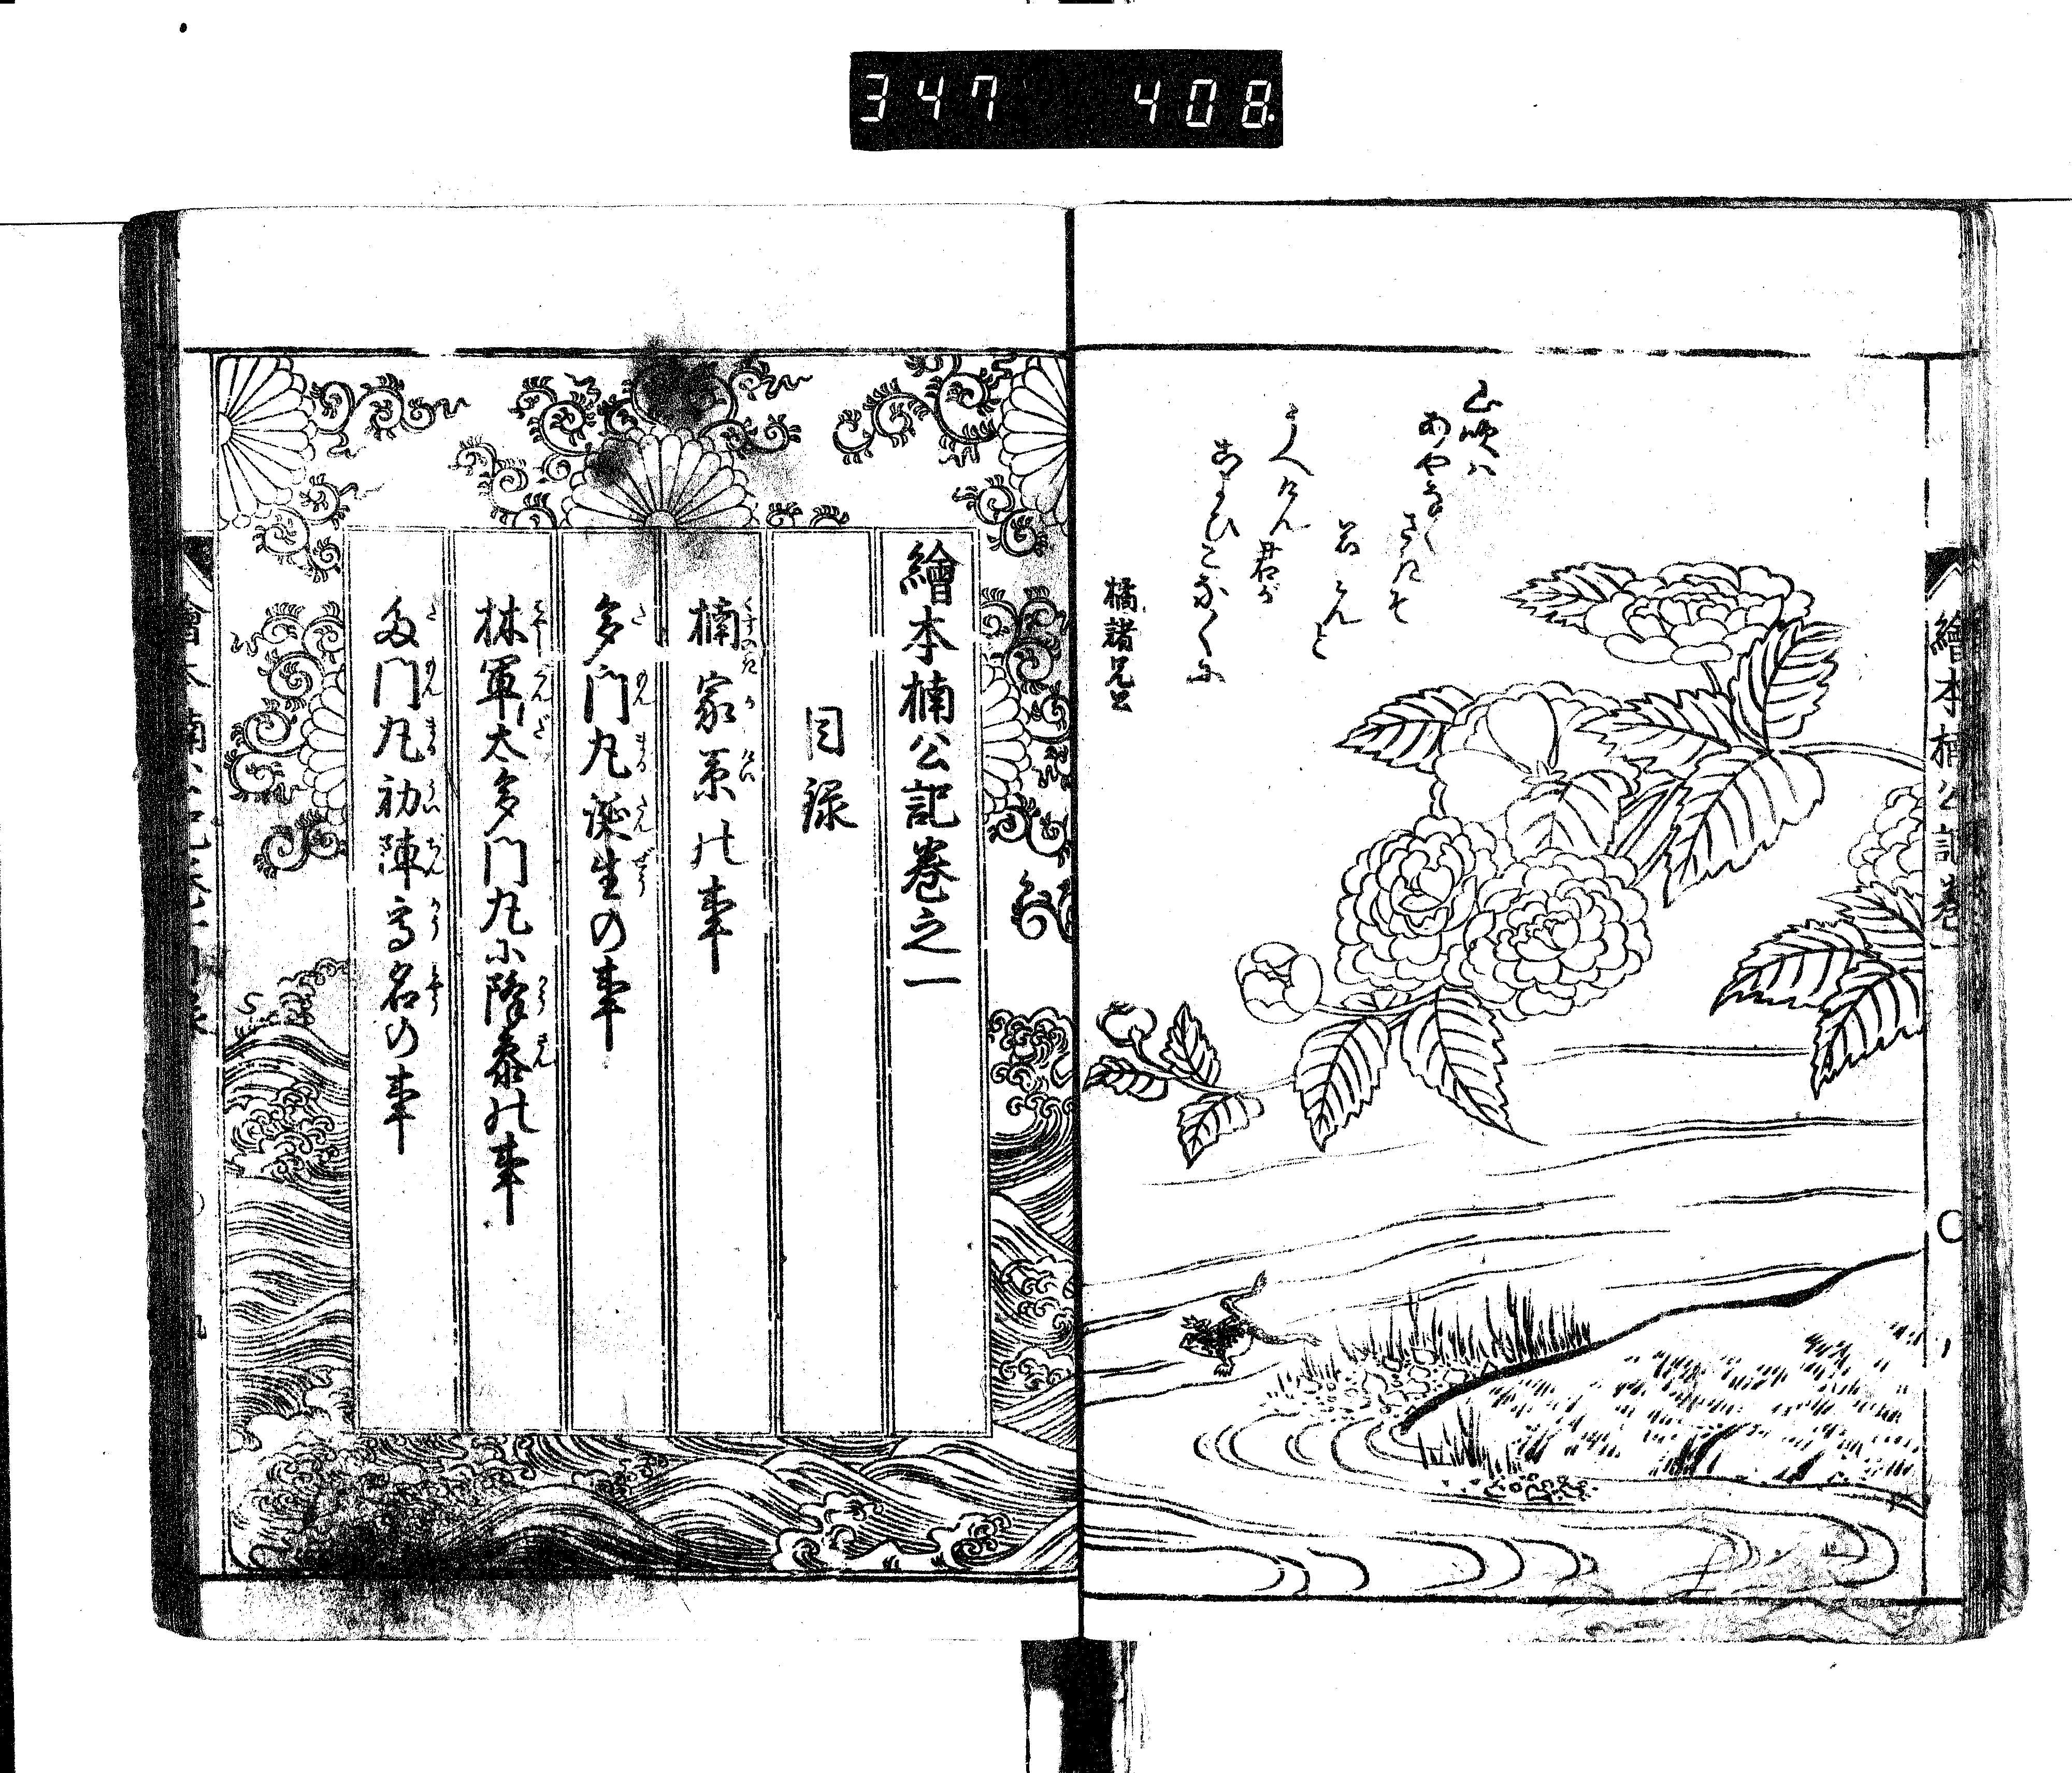 347 408.
繪本楠公記巻
山吹ハ
あやなくさきそ
花みんと
うへけん君が
こよひこなくに
橘諸兄公
繪本楠公記巻之一
目録
楠家系の事
多門丸誕生の事
林軍太多門丸に降参の事
多門丸初陣高名の事